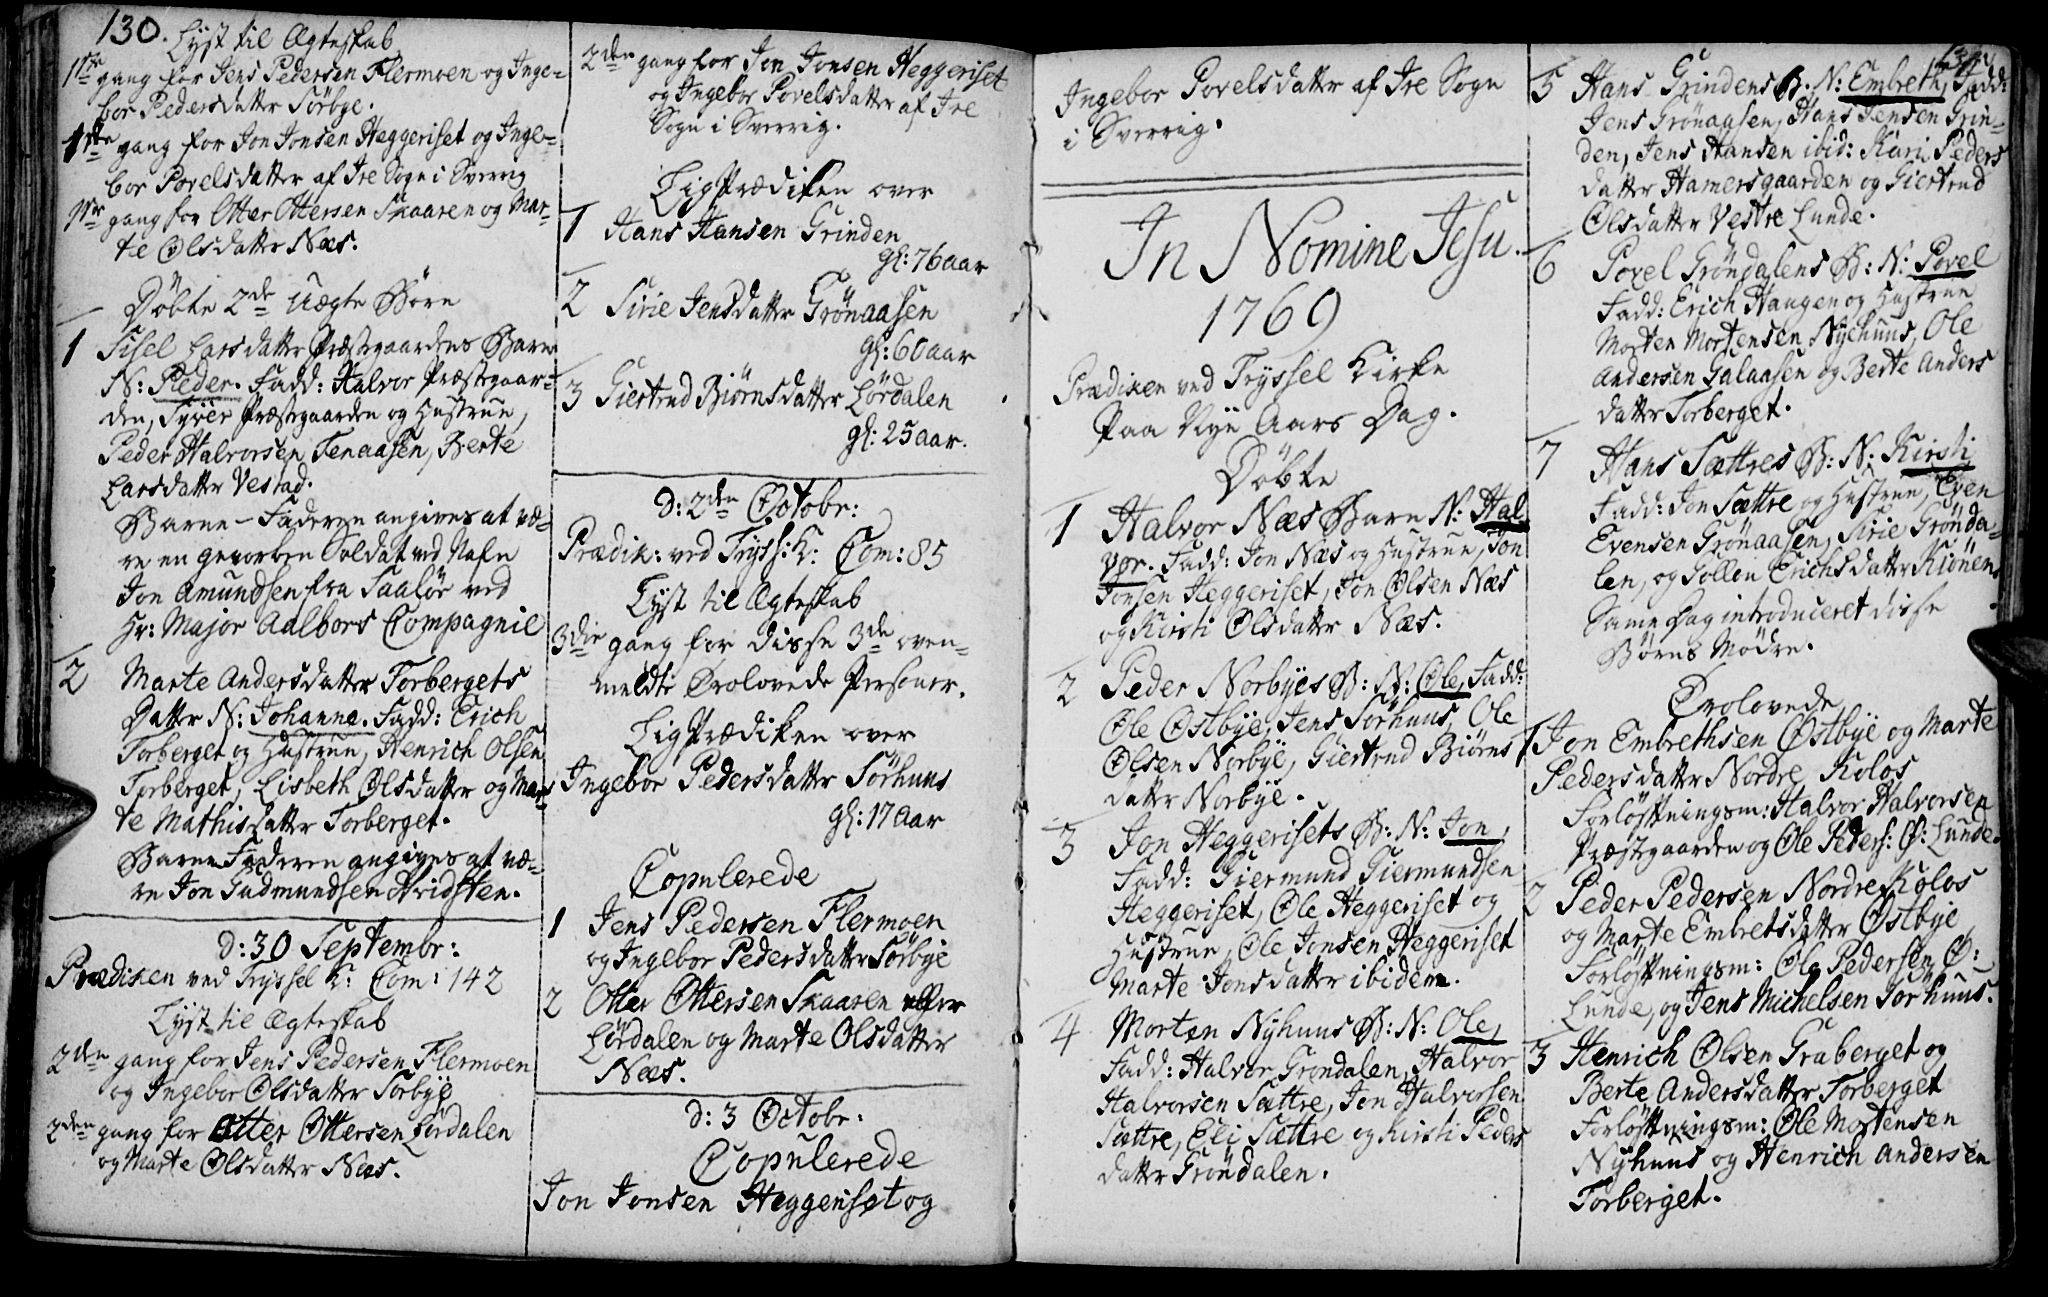 130.
Lyst til Ægteskab
1ste gang for Jens Pedersen Flermoen og Inge-
bor Pedersdatter Sörbye.
1ste gang for Jon Jonsen Heggeriset og Inge-
bor Povelsdatter af Ire Sogn i Sverrig
1ste gang for Otter Ottersen Skaaren og Mar-
te Olsdatter Næs.
Döbte 2de Uægte Börn
1 Sisel Larsdatter Præstegaardens Barn
N: Peder. Fadd: Halvor Præstegaar-
den, Syver Præstegaarden og Hustrue,
Peder Halvorsen Tenaasen, Berte
Larsdatter Vestad.
Barne-Faderen angives at væ-
re en geworben Soldat ved Nafn
Jon Amundsen fra Saalör ved
Hr: Major Aalbors Compagnie
2 Marte Andersdatter Torbergets
Datter N: Johanna. Fadd: Erich
Torberget og Hustrue, Henrich Olsen
Torberget, Lisbeth Olsdatter og Mar-
te Mathisdatter Torberget.
Barne Faderen angives at væ-
re Jon Gudmundsen Qvidsten.
d: 30 Septembr:
Prædiken ved Tryssel K: Com: 142
Lyst til Ægteskab
2den gang for Jens Pedersen Flermoen
og Ingebor Olsdatter Sörbye
2den gang for Otter Ottersen Lördalen
og Marte Olsdatter Næs.
2den gang for Jon Jonsen Heggeriset
og Ingebor Povelsdatter af Ire
Sogn i Sverrig.
LigPrædiken over
1 Hans Hansen Grinden
gl: 76 aar
2 Sirie Jensdatter Grönaasen
gl: 60 aar
3 Giertrud Biörnsdatter Lördalen
gl: 25 aar.
D: 2den Octobr:
Prædik: ved Tryss: K: Com: 85
Lyst til Ægteskab
3die gang for disse 3de oven-
meldte Trolovede Personer.
LigPrædiken over
Ingebor Pedersdatter Sörhuus
gl: 17 Aar
Copulerede
1 Jens Pedersen Flermoen
og Ingebor Pedersdatter Sörbye
2 Otter Ottersen Skaaren eller
Lördalen og Marte Olsdatter
Næs.
d: 3 Octobr:
Copulerede
Jon Jonsen Heggeriset og
Ingebor Povelsdatter af Ire Sogn
i Sverrig.
In Nomine Jesu.
1769
Prædiken ved Tryssel Kirke
Paa Nye Aars Dag.
Döbte
1 Halvor Næs Barn N: Hal-
vor. Fadd: Jon Næs og Hustrue, Jon
Jonsen Heggeriset, Jon Olsen Næs
og Kirsti Olsdatter Næs.
2 Peder Norbyes B: N: Ole, Fadd:
Ole Østbye, Jens Sörhuus, Ole
Olsen Norbye, Giertrud Biörns
datter Norbye.
3 Jon Heggerisets B: N: Jon,
Fadd: Giermund Giermundsen
Heggeriset, Ole Heggeriset og
Hustrue, Ole Jonsen Heggeriset
Marte Jonsdatter ibidem.
4 Morten Nyhuus B: N: Ole,
Fadd: Halvor Gröndalen, Halvor
Halvorsen Sættre, Jon Halvorsen
Sættre, Eli Sættre og Kirsti Peders
datter Gröndalen.
5 Hans Grindens B. N: Embreth, Fadd:
Jens Grönaasen, Hans Jensen Grin-
den, Jens Hansen ibid: Kari Peders
datter Hamersgaarden og Giertrud
Olsdatter Vestre Lunde.
6 Povel Gröndalens B: N: Povel
Fadd: Erich Haugen og Hustrue
Morten Mortensen Nyehuus, Ole
Andersen Galaasen og Berte Anders
datter Torberget.
7 Hans Sættres B: N: Kirsti
Fadd: Jon Sættre og Hustrue, Even
Evensen Grönaasen, Sirie Grönda-
len, og Gollou Erichsdatter Kiönen
Same Dag introduceret disse
Börns Mödre.
Trolovede
1 Jon Embrethsen Østbye og Marte
Pedersdatter Nordre Kolos
Forlöftningsm: Halvor Halvorsen
Præstegaarden og Ole Peders: Ø: Lunde.
2 Peder Pedersen Nordre Kolos
og Marte Embretsdatter Østbye
Forlöftningsm: Ole Pedersen Ø:
Lunde, og Jens Michelsen Sörhuus.
3 Henrich Olsen Graberget og
Berte Andersdatter Torberget
Forlöftningsm: Ole Mortensen
Nyhuus og Henrich Andersen
Torberget.